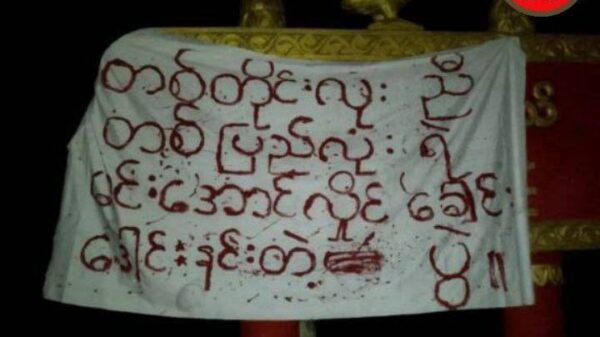 တစ်တိုင်းလုး ညီ
တစ် ပြည်လုံး ရဲ
မင်းအောင်လှိုင် ခေါင်း
ဒေါင်းနင်းတဲ့ ပွဲ ။